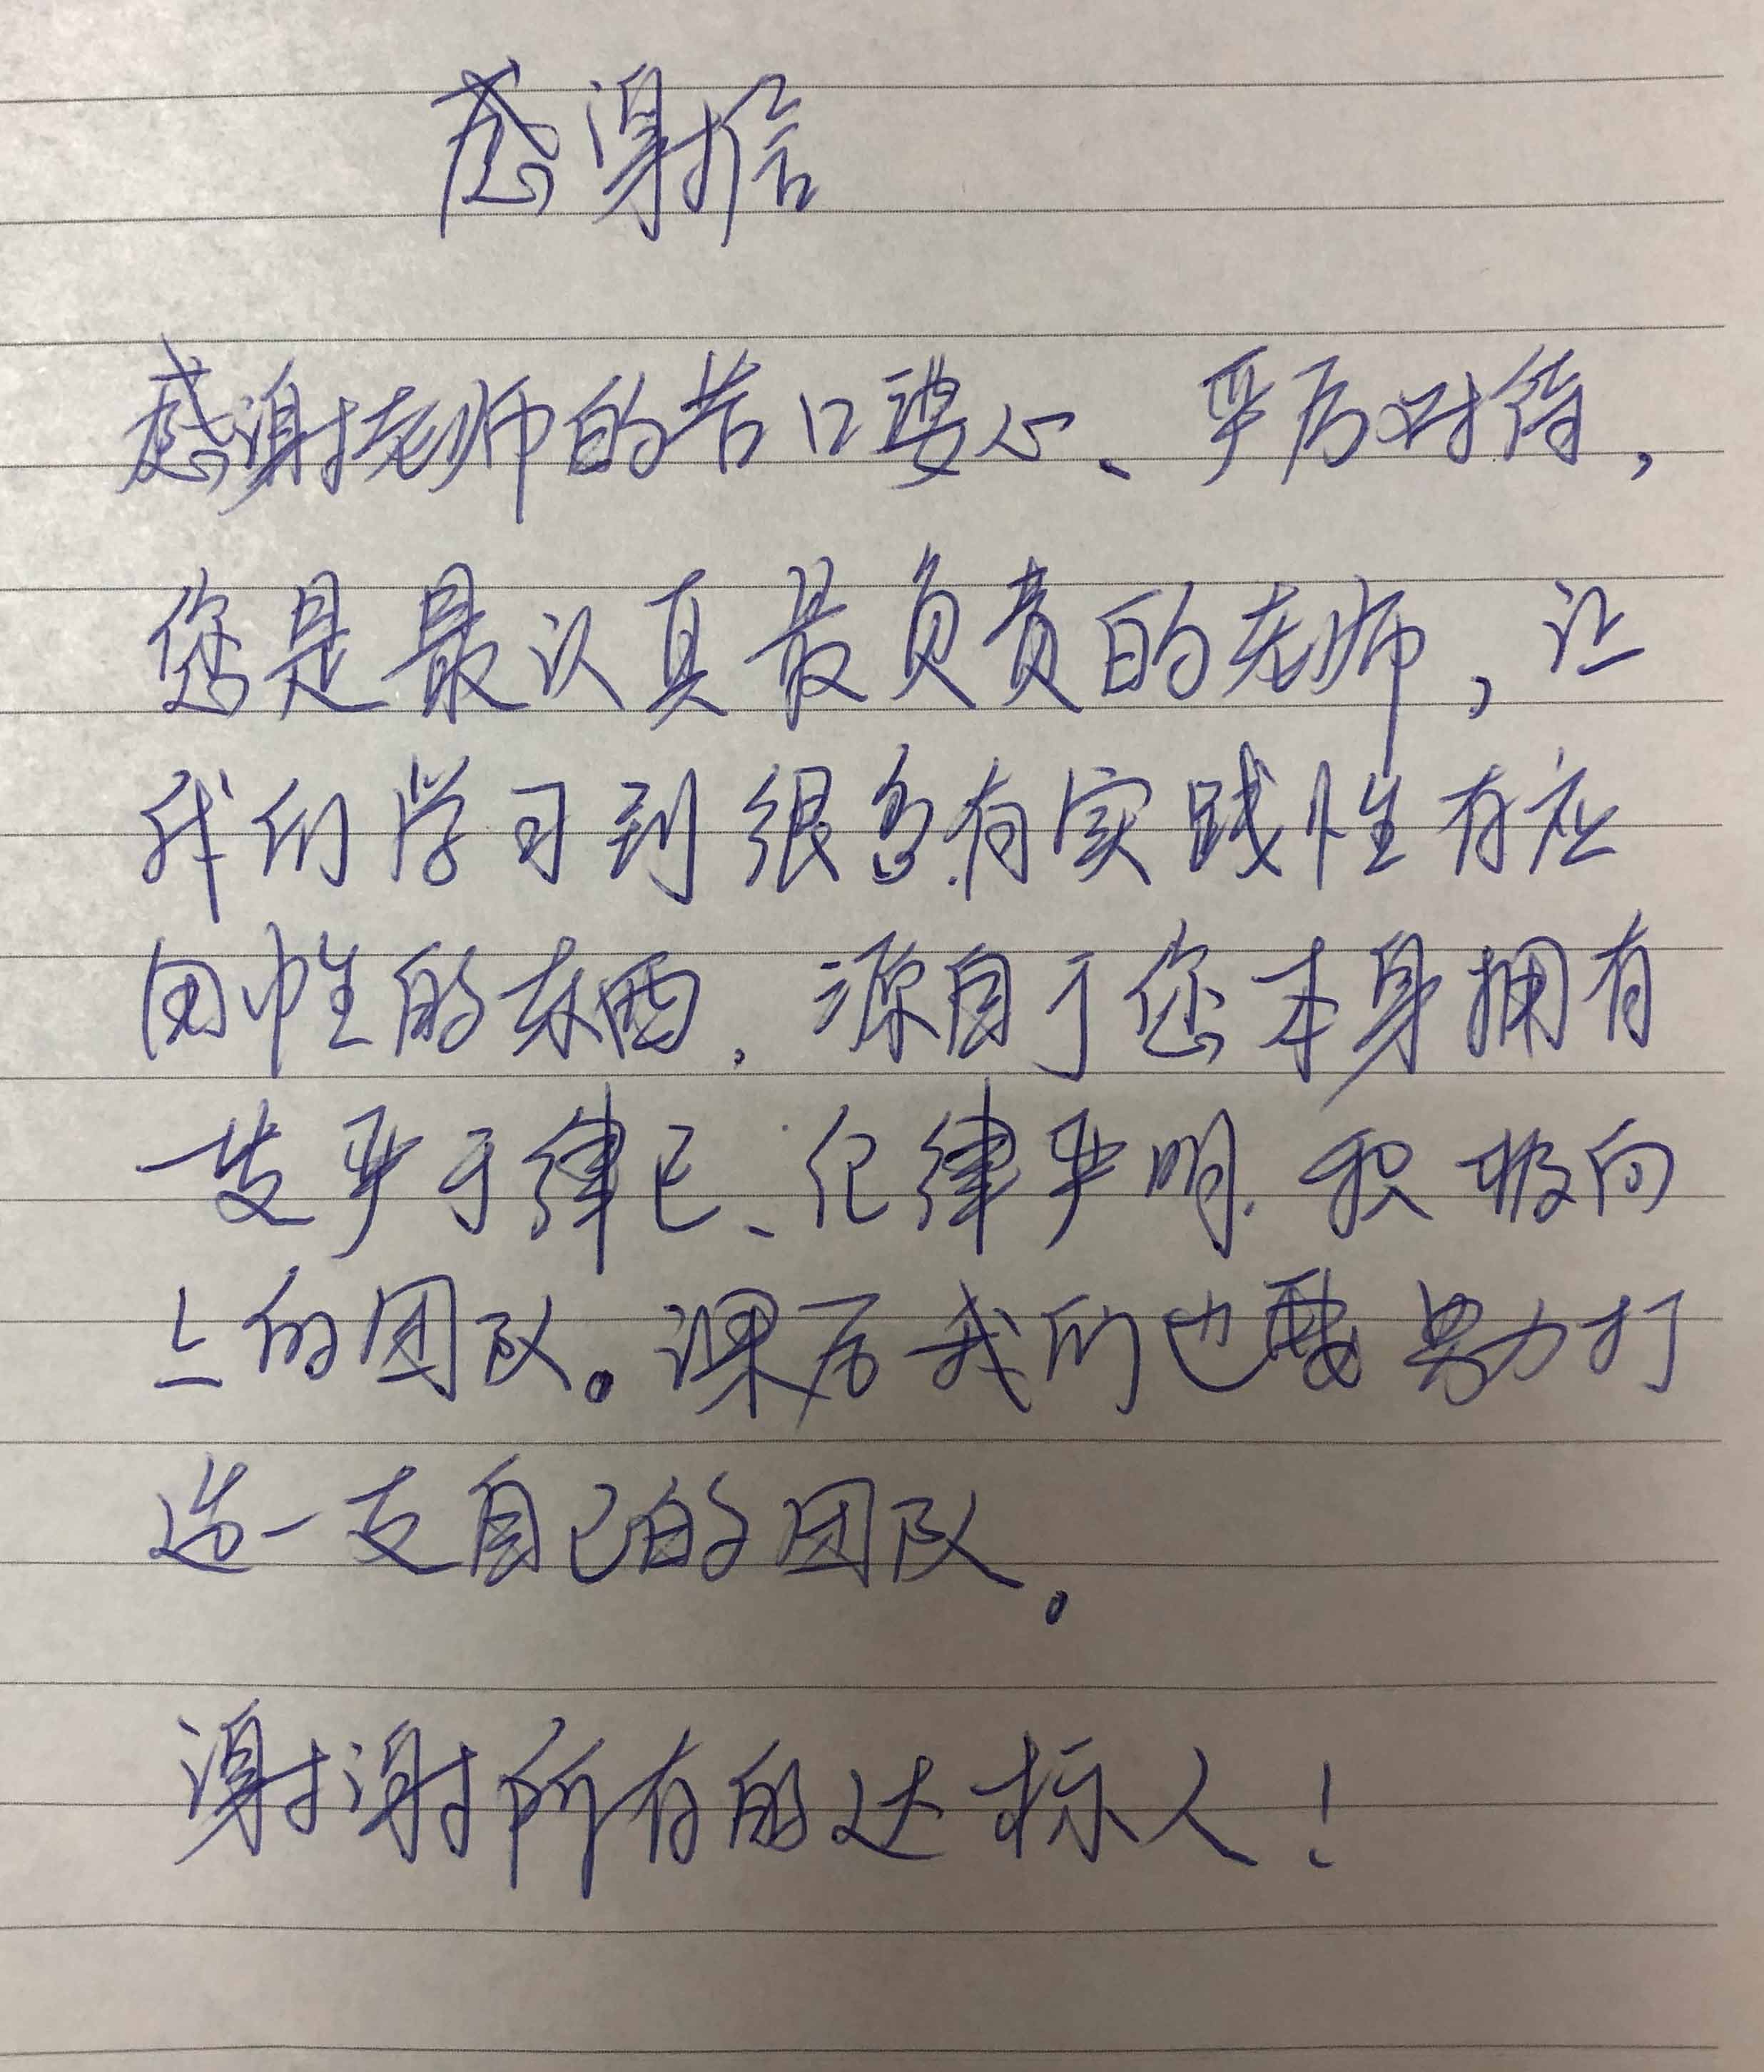 感谢信
感谢老师的苦口婆心、严厉对待，
您是最认真最负责的老师，让
我们学习到很多有实践性有应
用性的东西，源自于您本身拥有
一支严于律己、纪律严明、积极向
上的团队。课后我们也要努力打
造一支自己的团队。
谢谢所有的达标人！